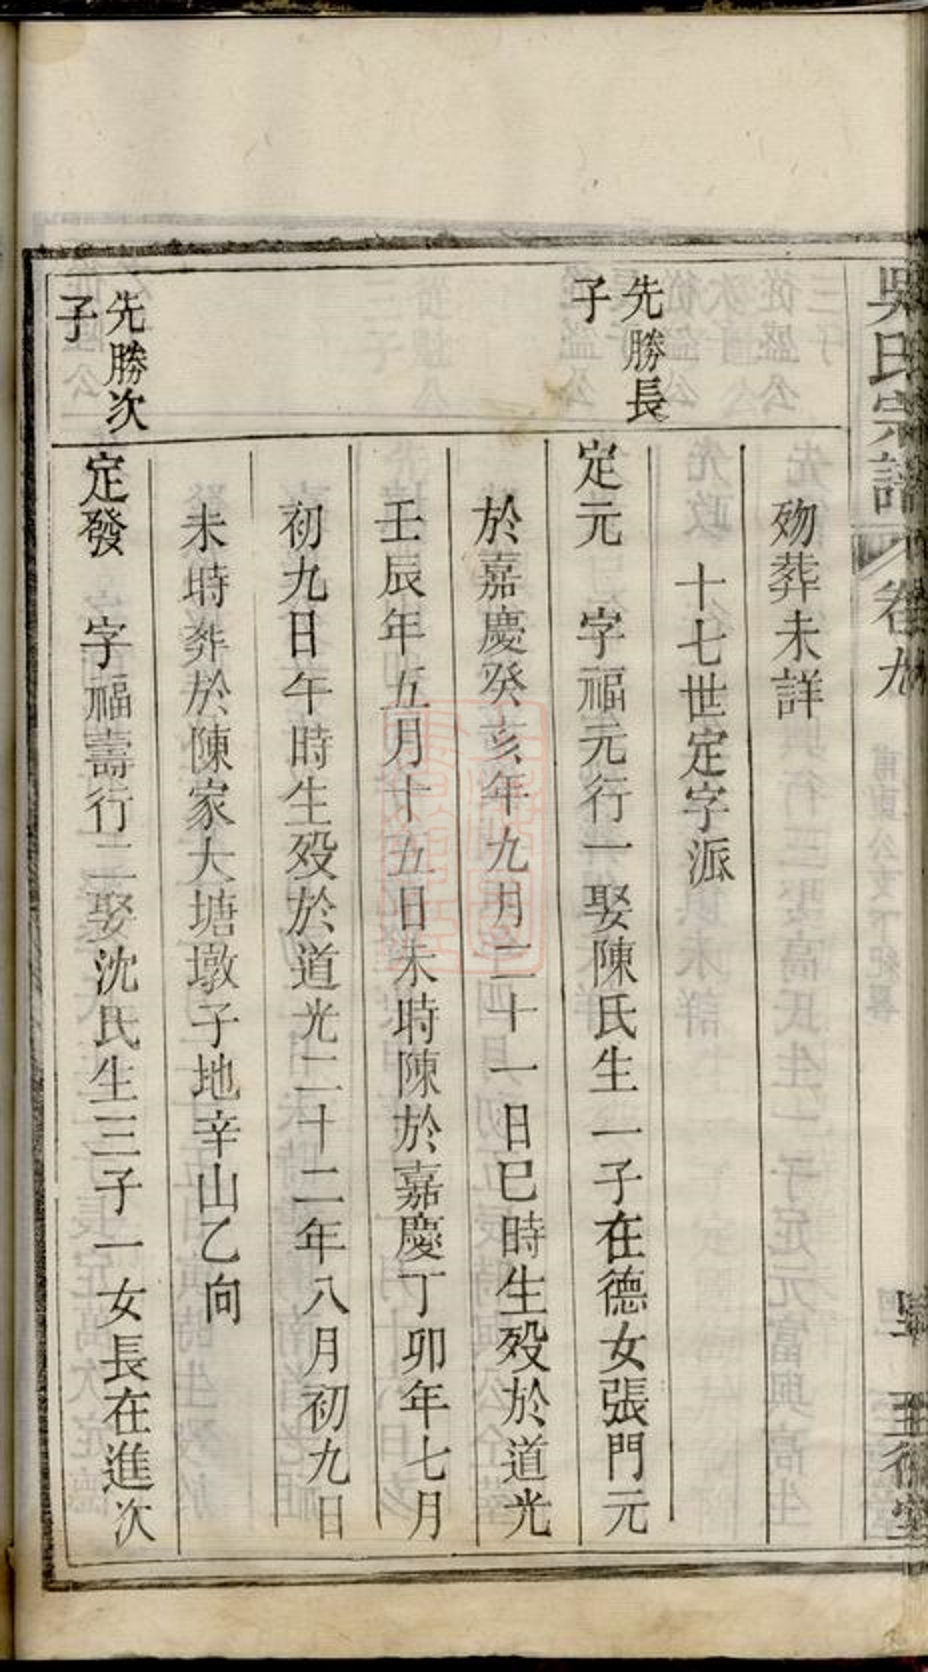 吳氏宗譜
卷九
至德堂
歿葬未詳
十七世定字派
先勝長
子
定元 字福元行一娶陳氏生一子在德女張門元
於嘉慶癸亥年九月二十一日巳時生殁於道光
壬辰年五月十五日未時陳於嘉慶丁卯年七月
初九日午時生殁於道光二十二年八月初九日
未時葬於陳家大塘墩子地辛山乙向
先勝次
子
定發 字福壽行二娶沈氏生三子一女長在進次